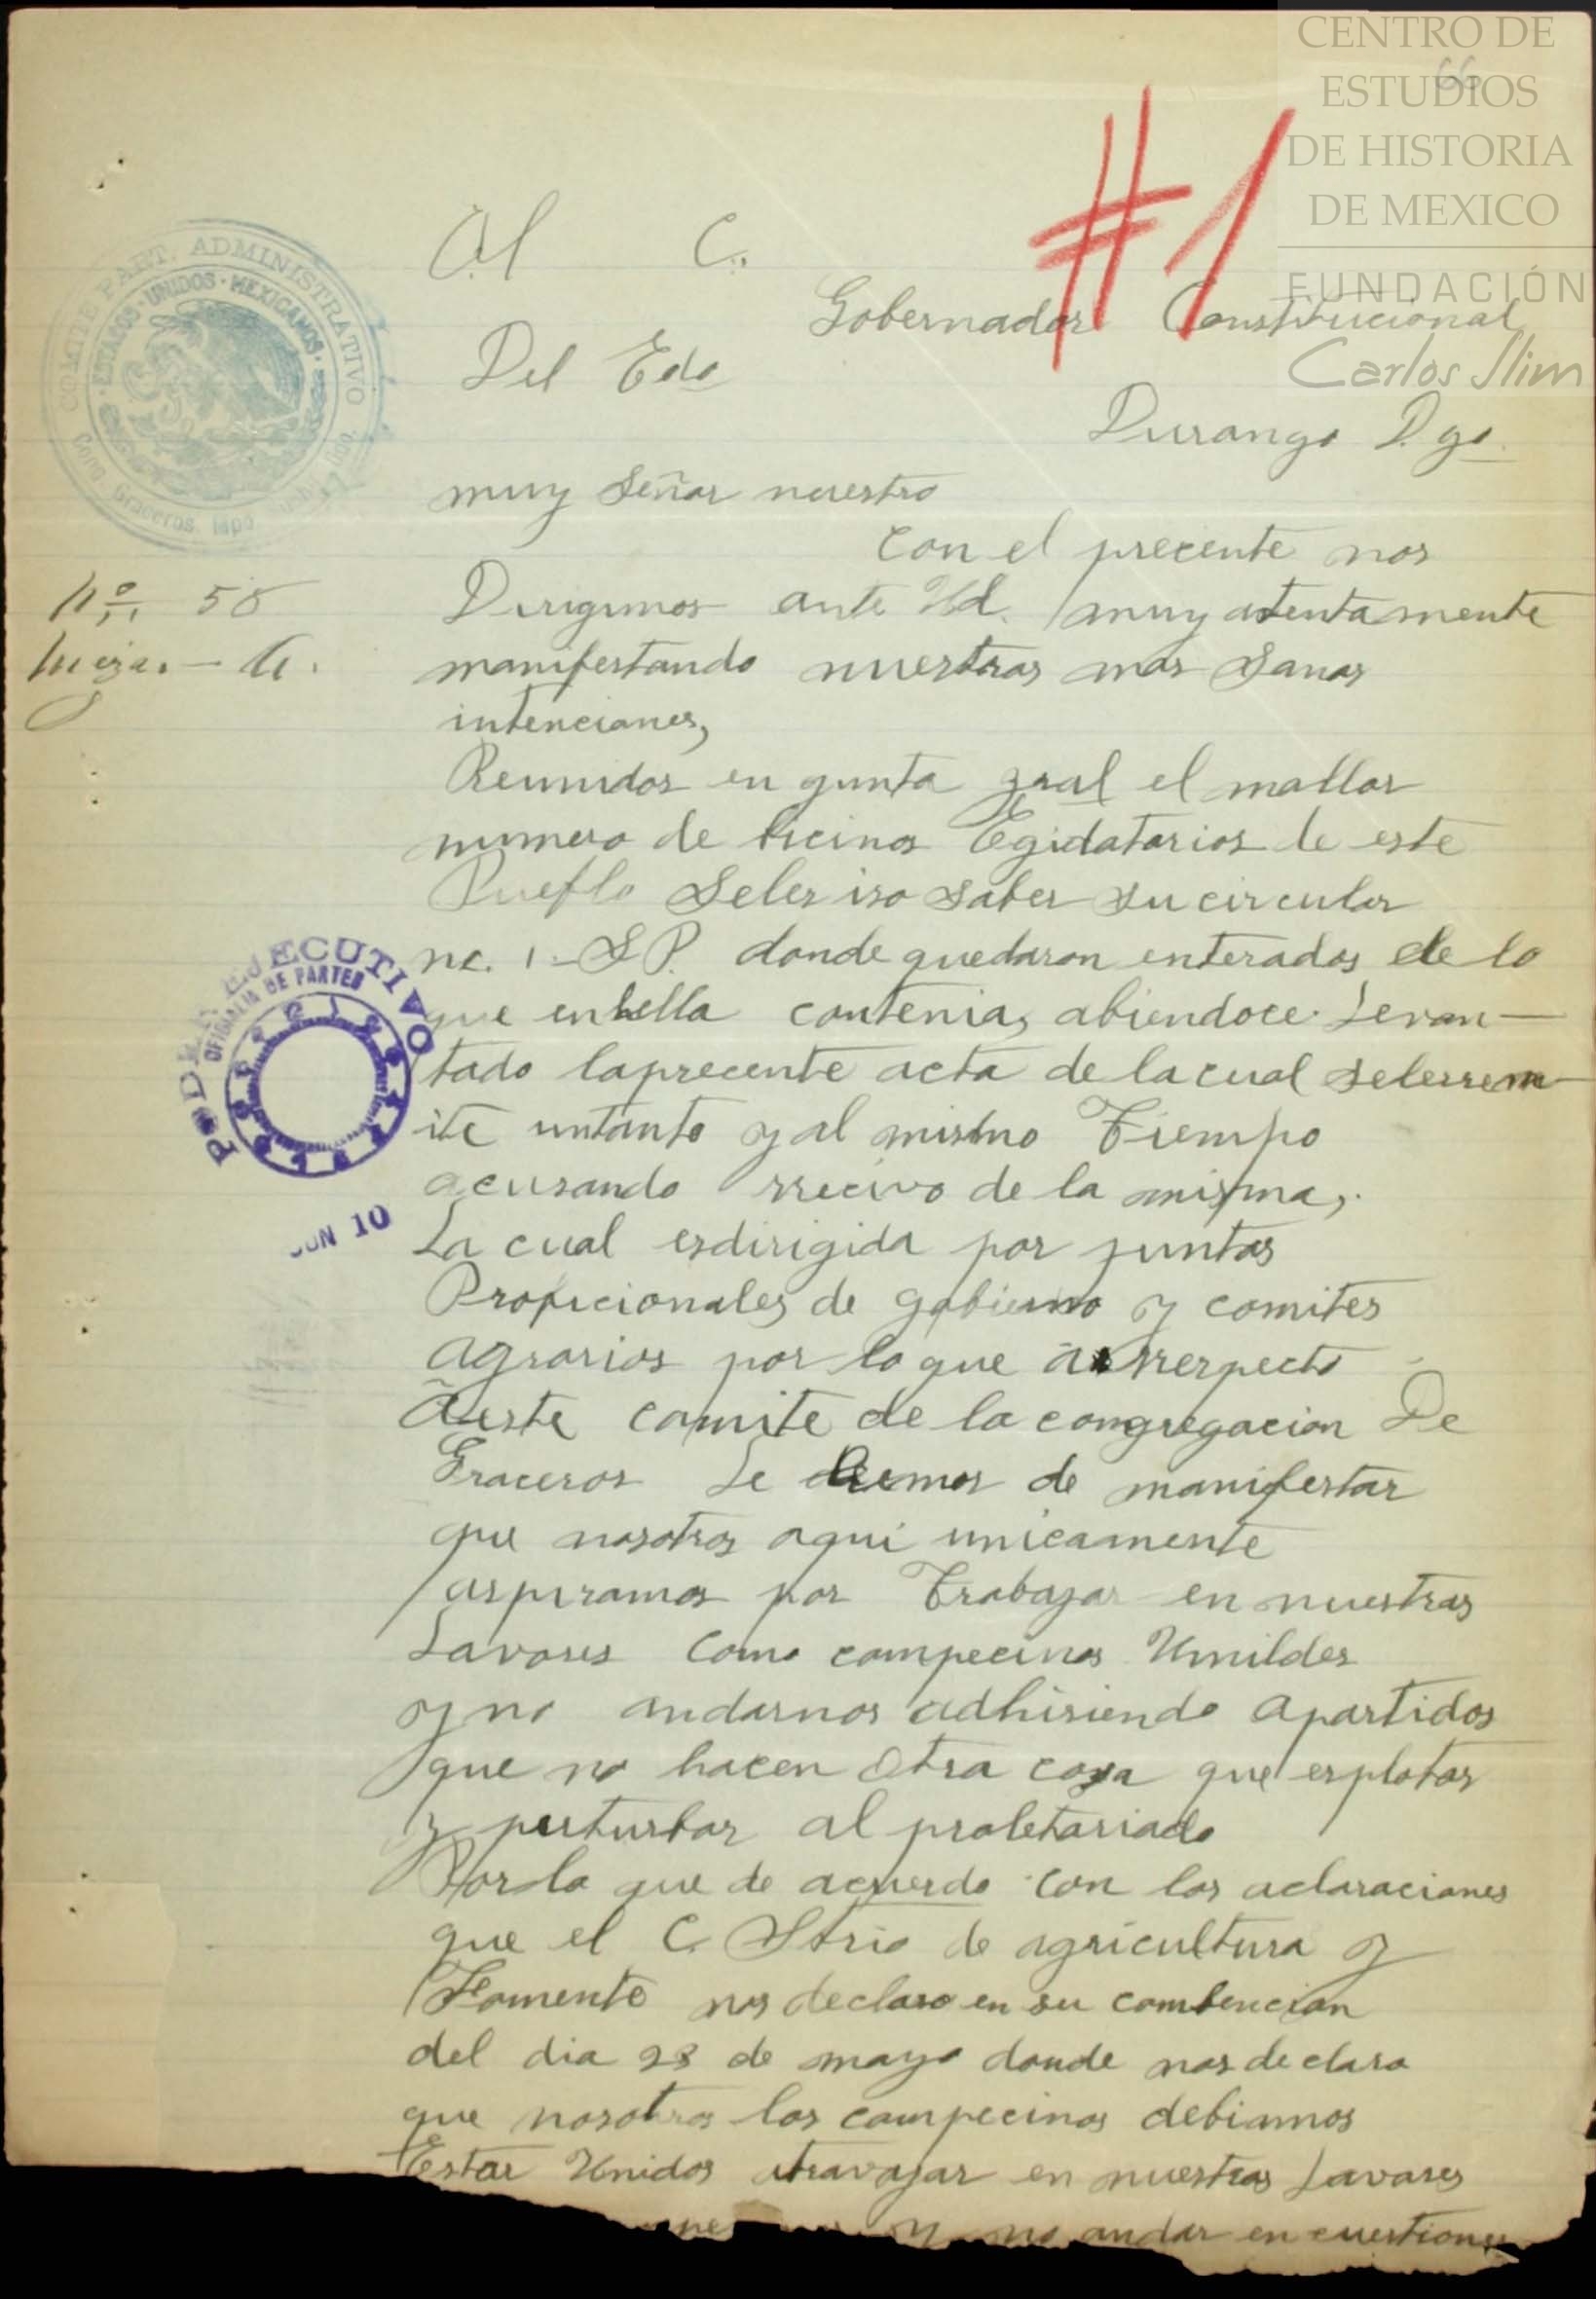 CENTRO DE
ESTUDIOS
DE HISTORIA
DE MEXICO
FUNDACIÓN
Carlos Slim
66
#1
COMITE PART. ADMINISTRATIVO
ESTADOS · UNIDOS · MEXICANOS
Al C.
Gobernador Constitucional
Del Edo
Durango D.go.
muy Señor nuestro
Con el precente nos
No. 58
Dirigimos ante Ud. muy atentamente
manifestando nuestras mas Sanas
intenciones,
Reunidos en gunta gral el mallor
numero de vicinos Egidatarios de este
Pueblo Seles iso saber su circular
no. 1.- S P. donde quedaron enterados de lo
que enhella contenia, abiendoce Levan-
tado laprecente acta de lacual selerrem-
ite untanto y al mismo Tiempo
acusando rrecivo de la misma,.
La cual esdirigida por juntas
Proficionales de gobierno y comites
agrarios por lo que a rrespecto
Aeste comite de la congregacion De
Graceros Le Hemos de manifestar
que nosotros aqui unicamente
aspiramos por Trabajar en nuestras
Lavores Como campecinos Umildes
y no andarnos adhiriendo apartidos
que no hacen Otra cosa que esplotar
y perturbar al proletariado
Porlo que de acuerdo con las aclaraciones
que el C. Strio de agricultura y
Fomento nos declaro en su combencion
del dia 28 de mayo donde nos declara
que nosotros los campecinos debiamos
Estar Unidos atravajar en nuestras Lavores
y no andar en cuestiones
PODER EJECUTIVO
OFICIALIA DE PARTES
JUN 10